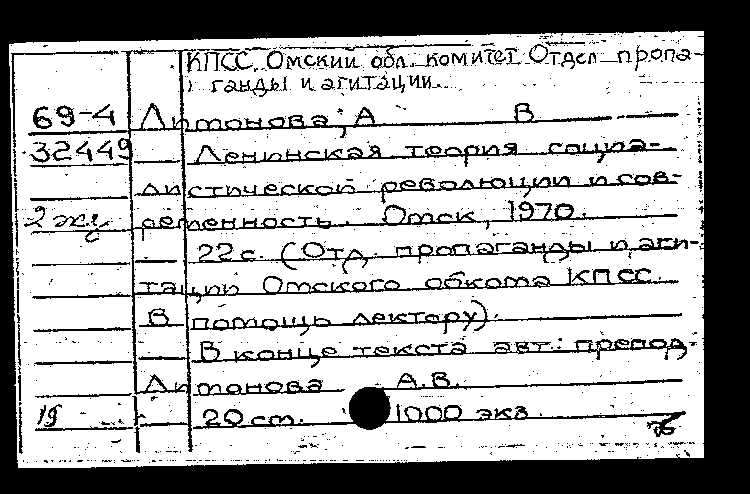 КПСС. Омский обл. комитет. Отдел пропа-
ганды и агитации.
69-4 Литонова, А В
32449 Ленинская теория социа-
листической революции и сов-
2 экз ременность. Омск, 1970.
22 с. (Отд. пропаганды и аги-
тации Омского обкома КПСС.
В помощь лектору).
В конце текста авт.: препод.
Литонова А.В.
19 20 ст. 1000 экз.